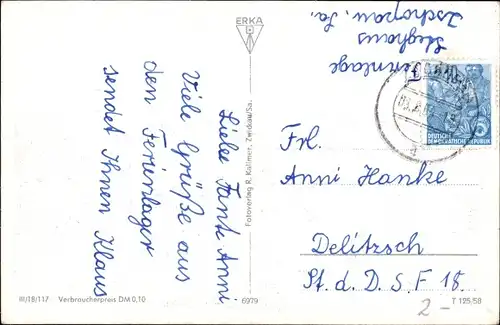 ERKA
Liebe Tante Anni
Viele Grüße aus
den Ferienlager
sendet Ihnen Klaus
Fotoverlag R. Kallmer, Zwickau/Sa.
Zschopau, Sa.
DEUTSCHE
DEMOKRATISCHE REPUBLIK
Frl.
Anni Hanke
Delitzsch
St. d. D. S. F 18.
2-
III/18/117 Verbraucherpreis DM 0,10
6979
T 125/58